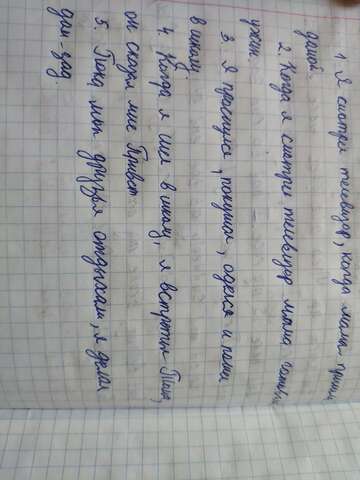 1. Я смотрел телевизор, когда мама пришла
домой.
2. Когда я смотрел телевизор мама готовила
ужин.
3. Я проснулся, покушал, оделся и пошёл
в школу.
4. Когда я шёл в школу, я встретил Тима,
он сказал мне Привет
5. Пока мои друзья отдыхали, я делал
дом-зад.